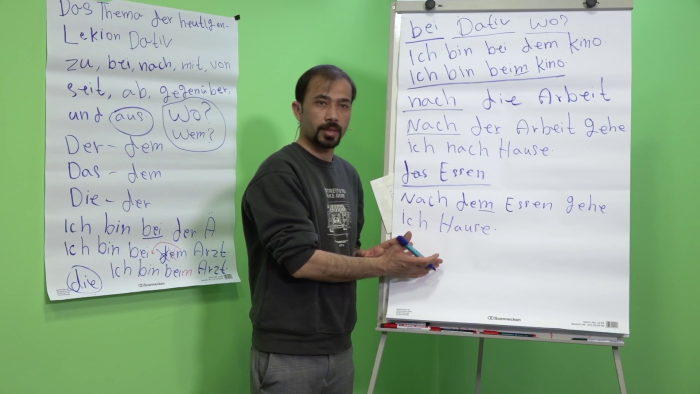 Das Thema der heutigen
Lektion Dativ
zu, bei, nach, mit, von
seit, ab, gegenüber,
und aus
Wo?
Wem?
Der - dem
Das - dem
Die - der
Ich bin bei der A
Ich bin bei dem Arzt
die Ich bin beim Arzt.
bei Dativ Wo?
Ich bin bei dem Kino.
Ich bin beim Kino.
nach die Arbeit
Nach der Arbeit gehe
ich nach Hause
das Essen
Nach dem Essen gehe
ich Hause.